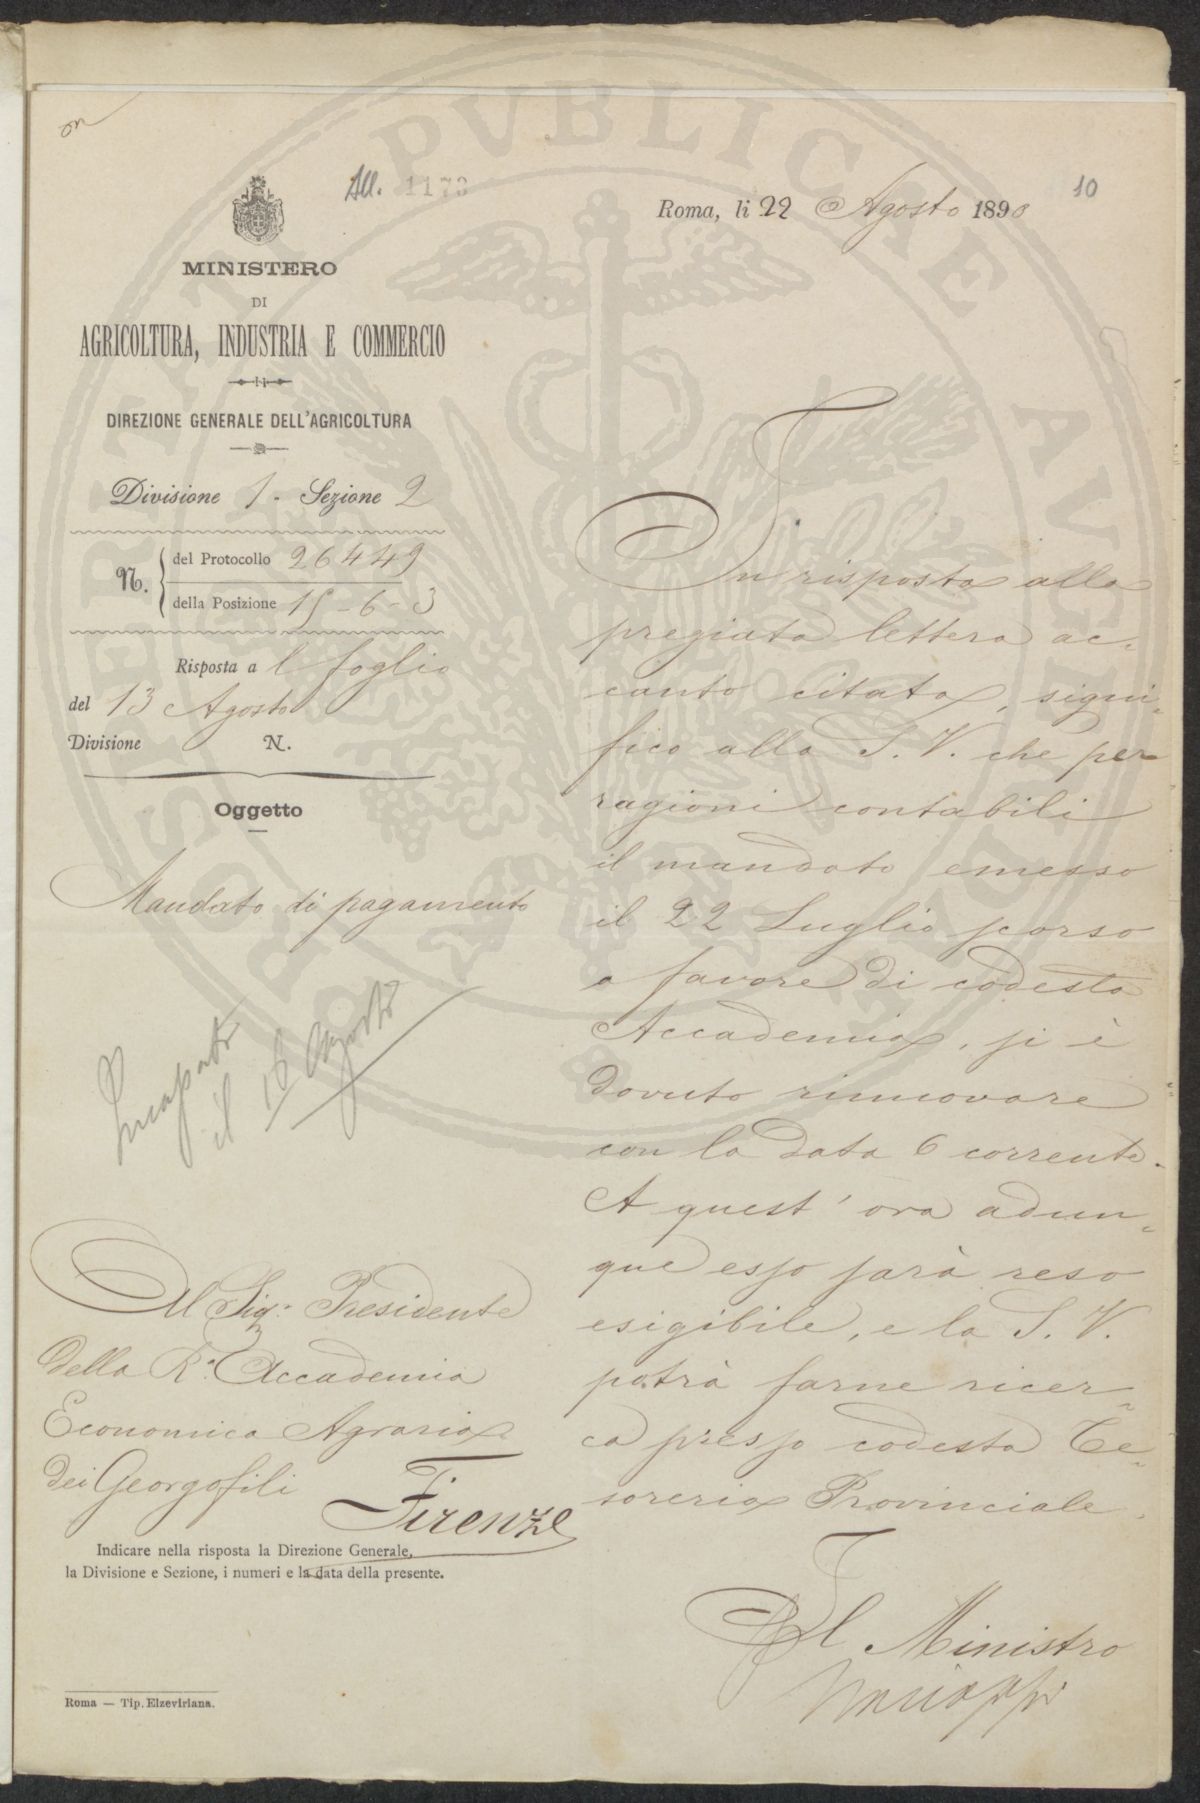 All. 1173
10
Roma, li 22 Agosto 1890
MINISTERO
DI
AGRICOLTURA, INDUSTRIA E COMMERCIO
DIREZIONE GENERALE DELL'AGRICOLTURA
Divisione 1 - Sezione 2
N. del Protocollo 26449
della Posizione 15-6-3
Risposta a l foglio
del 13 Agosto
Divisione N.
Oggetto
Mandato di pagamento
Incassato
il 16 Agosto
Al Sig.r Presidente
della R.a Accademia
Economica Agraria
dei Georgofili
Firenze
Indicare nella risposta la Direzione Generale,
la Divisione e Sezione, i numeri e la data della presente.
Roma — Tip. Elzeviriana.
In risposta alla
pregiata lettera ac-
canto citata, signi-
fico alla S. V. che per
ragioni contabili
il mandato emesso
il 22 Luglio scorso
a favore di codesta
Accademia, si è
dovuto rinnovare
con la data 6 corrente.
A quest'ora adun-
que esso sarà reso
esigibile, e la S. V.
potrà farne ricer-
ca presso codesta Te-
soreria Provinciale.
Il Ministro
PUBLICAE